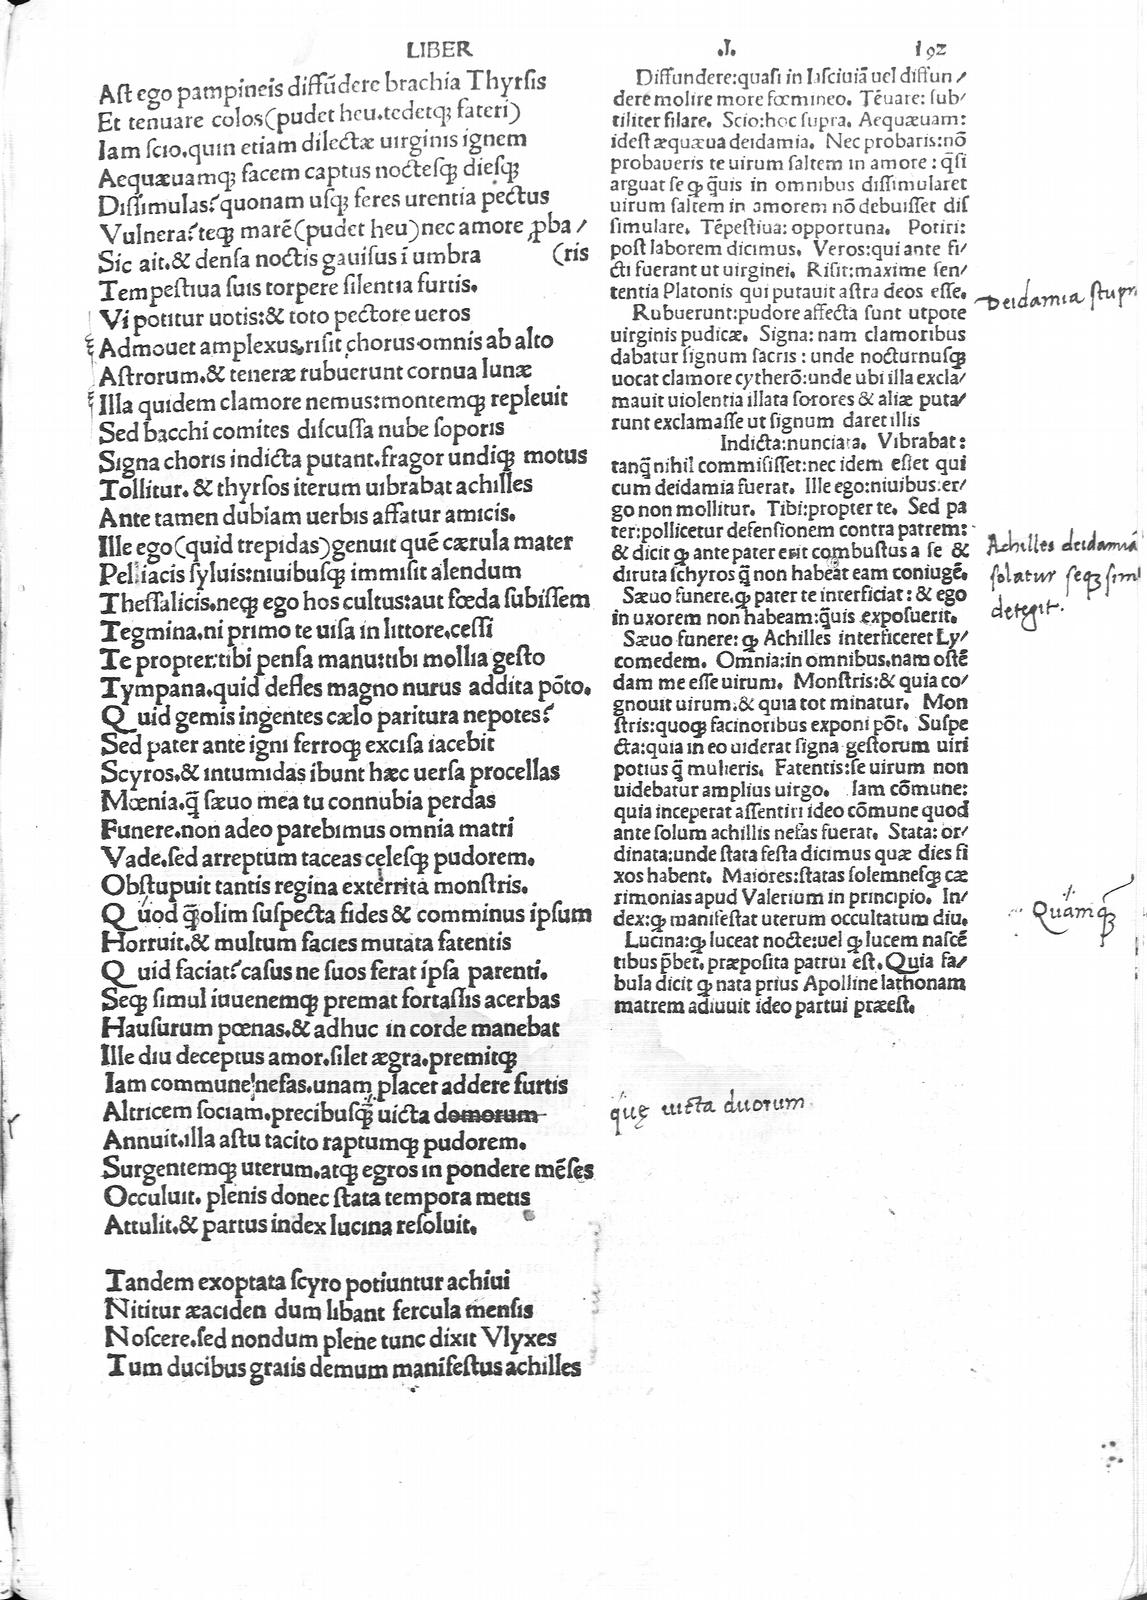 LIBER .I. 192
Aſt ego pampineis diffūdere brachia Thyrſis
Et tenuare colos(pudet heu.tedetqꝫ fateri)
Iam ſcio.quin etiam dilectæ uirginis ignem
Aequæuamqꝫ facem captus nocteſqꝫ dieſqꝫ
Diſſimulas?quonam uſqꝫ feres urentia pectus
Vulnera?teqꝫ marē(pudet heu)nec amore ꝓba/
(ris
Sic ait.& denſa noctis gauiſus ī umbra
Tempeſtiua ſuis torpere ſilentia furtis.
Vi potitur uotis:& toto pectore ueros
Admouet amplexus.riſit chorus omnis ab alto
Aſtrorum.& teneræ rubuerunt cornua lunæ
Illa quidem clamore nemus:montemqꝫ repleuit
Sed bacchi comites diſcuſſa nube ſoporis
Signa choris indicta putant.fragor undiqꝫ motus
Tollitur. & thyrſos iterum uibrabat achilles
Ante tamen dubiam uerbis affatur amicis.
Ille ego(quid trepidas)genuit quē cærula mater
Peliacis ſyluis:niuibuſqꝫ immiſit alendum
Theſſalicis.neqꝫ ego hos cultus:aut fœda ſubiſſem
Tegmina.ni primo te uiſa in littore.ceſſi
Te propter:tibi penſa manu:tibi mollia geſto
Tympana.quid defles magno nurus addita pōto.
Quid gemis ingentes cælo paritura nepotes?
Sed pater ante igni ferroqꝫ exciſa iacebit
Scyros.& intumidas ibunt hæc uerſa procellas
Mœnia.q̄ ſæuo mea tu connubia perdas
Funere.non adeo parebimus omnia matri
Vade.ſed arreptum taceas celeſqꝫ pudorem.
Obſtupuit tantis regina exterrita monſtris.
Quod q̄olim ſuſpecta fides & comminus ipſum
Horruit.& multum facies mutata fatentis
Quid faciat?caſus ne ſuos ferat ipſa parenti.
Seqꝫ ſimul iuuenemqꝫ premat fortaſſis acerbas
Hauſurum pœnas.& adhuc in corde manebat
Ille diu deceptus amor.ſilet ægra.premitqꝫ
Iam commune nefas.unam placet addere furtis
Altricem ſociam.precibuſqꝫ uicta domorum
Annuit.illa aſtu tacito raptumqꝫ pudorem.
Surgentemqꝫ uterum.atqꝫ egros in pondere mēſes
Occuluit. plenis donec ſtata tempora metis
Attulit.& partus index lucina reſoluit.
Tandem exoptata ſcyro potiuntur achiui
Nititur æaciden dum libant fercula menſis
Noſcere.ſed nondum plene tunc dixit Vlyxes
Tum ducibus gratis demum manifeſtus achilles
Diffundere:quaſi in laſciuiā uel diffun/
dere molire more fœmineo. Tēuare: ſub/
tiliter filare. Scio:hoc ſupra. Aequæuam:
ideſt æquæua deidamia. Nec probaris:nō
probaueris te uirum ſaltem in amore : q̄ſi
arguat ſe qꝫ q̄uis in omnibus diſſimularet
uirum ſaltem in amorem nō debuiſſet diſ
ſimulare. Tēpeſtiua: opportuna. Potiri:
poſt laborem dicimus. Veros:qui ante fi/
cti fuerant ut uirginei. Riſit:maxime ſen/
tentia Platonis qui putauit aſtra deos eſſe.
Rubuerunt:pudore affecta ſunt utpote
uirginis pudicæ. Signa: nam clamoribus
dabatur ſignum ſacris : unde nocturnuſqꝫ
uocat clamore cytherō:unde ubi illa excla/
mauit uiolentia illata ſorores & aliæ puta/
runt exclamaſſe ut ſignum daret illis
Indicta:nunciata. Vibrabat:
tanq̄ nihil commiſiſſet:nec idem eſſet qui
cum deidamia fuerat. Ille ego:niuibus:er/
go non mollitur. Tibi:propter te. Sed pa
ter:pollicetur defenſionem contra patrem:
& dicit qꝫ ante pater erit combuſtus a ſe &
diruta ſchyros q̄ non habeat eam coniugē.
Sæuo funere.qꝫ pater te interficiat : & ego
in uxorem non habeam:q̄uis expoſuerit.
Sæuo funere: qꝫ Achilles interficeret Ly/
comedem. Omnia:in omnibus.nam oſtē
dam me eſſe uirum. Monſtris:& quia co/
gnouit uirum.& quia tot minatur. Mon
ſtris:quoqꝫ facinoribus exponi pōt. Suſpe
cta:quia in eo uiderat ſigna geſtorum uiri
potius q̄ mulieris. Fatentis:ſe uirum non
uidebatur amplius uirgo. Iam cōmune:
quia inceperat aſſentiri ideo cōmune quod
ante ſolum achillis nefas fuerat. Stata: or/
dinata:unde ſtata feſta dicimus quæ dies fi
xos habent. Maiores:ſtatas ſolemneſqꝫ cæ
rimonias apud Valerium in principio. In/
dex:qꝫ manifeſtat uterum occultatum diu.
Lucina:qꝫ luceat nocte:uel qꝫ lucem naſcē
tibus p̄bet. præpoſita patrui eſt. Quia fa/
bula dicit qꝫ nata prius Apolline lathonam
matrem adiuuit ideo partui præeſt.
Deidamia ſtupr
Achilles deidamiā
ſolatur ſeqꝫ ſim
detegit.
Quamqꝫ
quę iuſta duorum